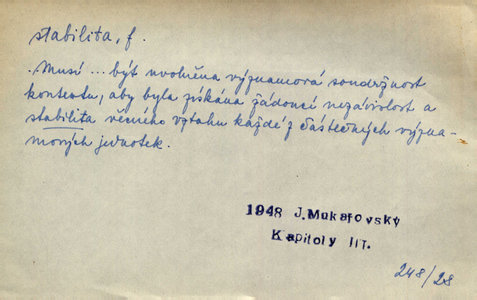 stabilita, f.
. Musí ... být uvolněna významová soudržnost
kontextu, aby byla získána žádoucí nezávislost a
stabilita věcného vztahu každé z částečných význa-
mových jednotek.
1948 J.Mukařovský
Kapitoly III.
248/28